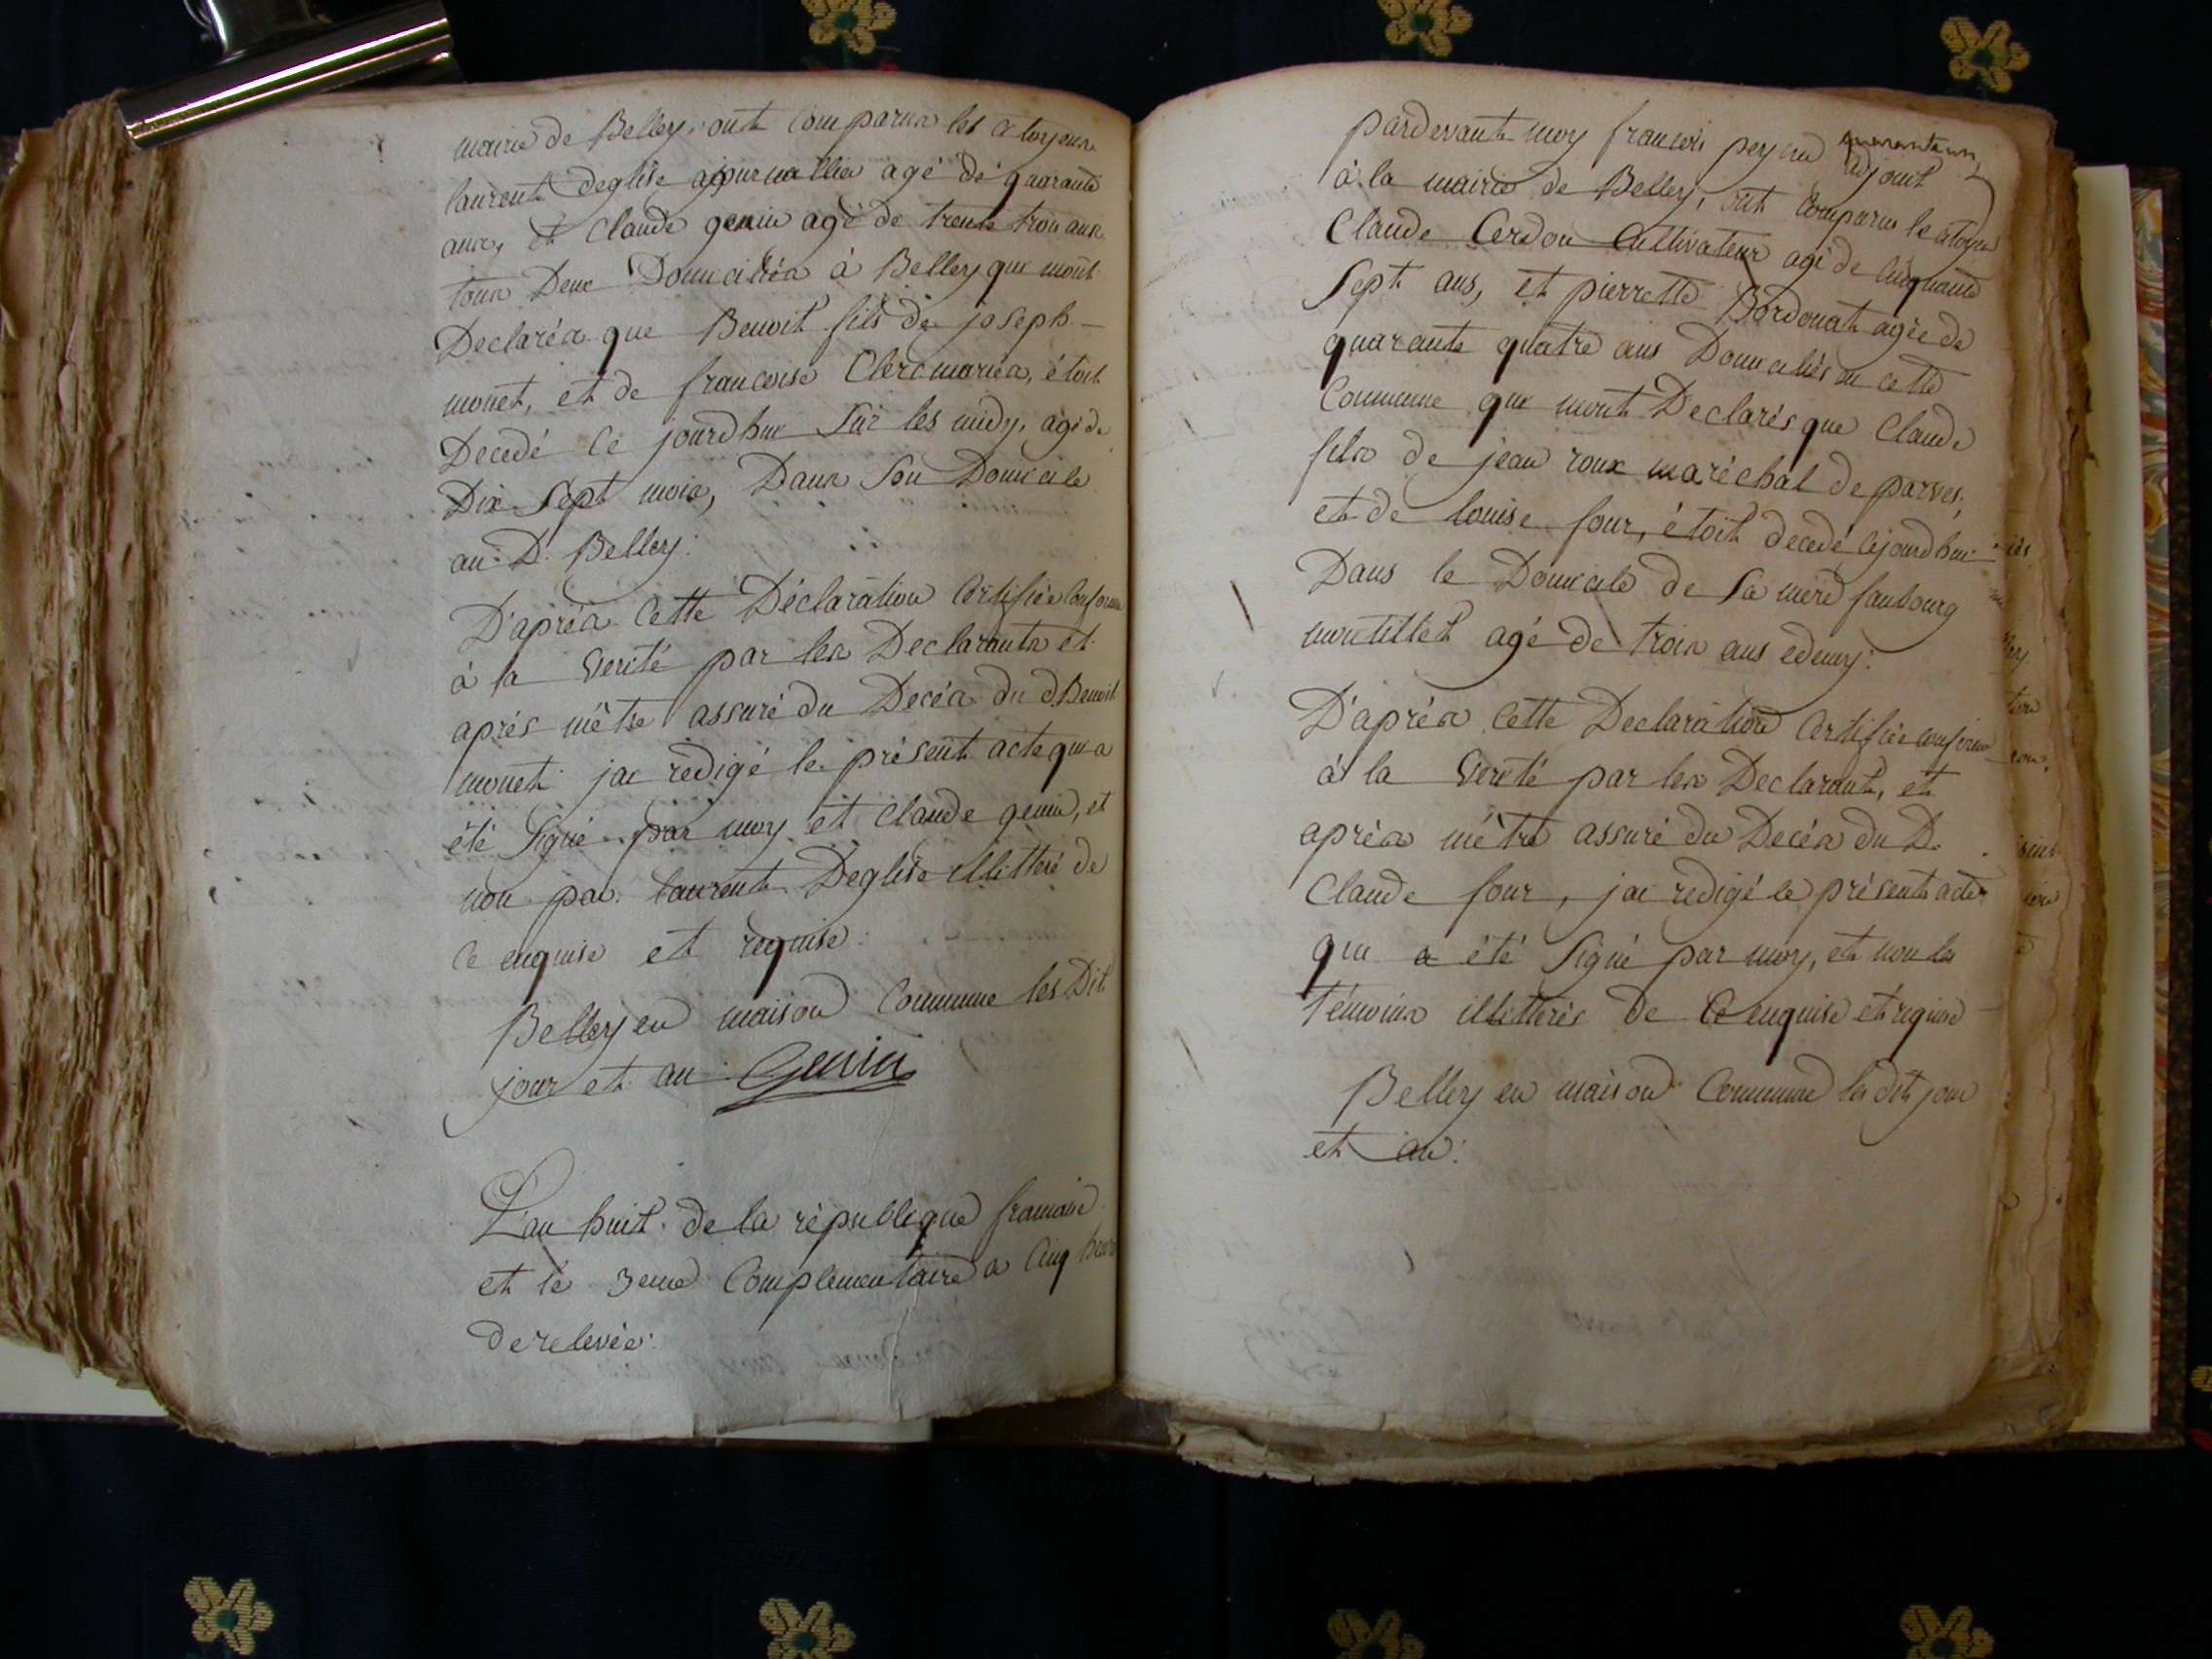 mairie de Belley, ont comparus les citoyens
laurent deglise ajournallier agé dé quarante
ans, et Claude genin agé de trente trois ans
tous Deux Domciliés à Belley qui mont
Declarés que Benoit fils de joseph
monet, et de francoise Clerc mariés, étoit
Decedé ce jourdhui sur les midy, agé de
Dix Sept mois, Dans son Domicile
au D. Belley.
D'aprés cette Déclaration Certifiée Conforme
à la Verité par les Declarants et
aprés m'être assuré du Decés du d. Benoit
monet jai redigé le présent acte qui a
été signé par moy et Claude genin, et
non par laurent Deglise illitteré de
ce enquise et requise.
Belley en maison Commune les Dit
jour et an. Genin
L'an huit de la république francaise
et le 3eme Complementaire a Cinq heures
de relevée.
quarante un
pardevant moy francois peysud adjoint
à la mairie de Belley, sest Comparus le citoyen
Claude Cerdon Cultivateur agé de Cinquante
Sept ans, et pierrette Bordonat agée de
quarante quatre ans Domiciliés en cette
Commune qui mont Declarés que Claude
fils de jean roux maréchal de parves,
et de louise four, étoit decedé cejourdhui
Dans le Domicile de sa mere faubourg
montillet agé de trois ans edemy.
D'aprés cette Declaration Certifiée conforme
à la Verité par les Declarant, et
aprés m'être assuré du Decés du D.
Claude four, jai redigé le présent acte
qui a été signé par moy, et non les
témoins illitterés de ce enquise et requise
Belley en maison Commune les dit jour
et an.